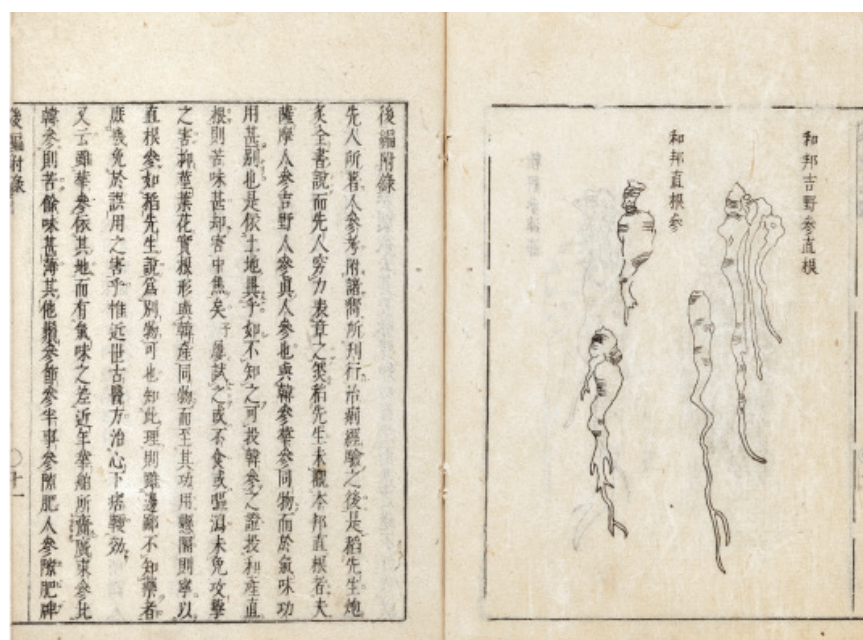 和邦吉野參直根
和邦直根參
後編附錄
先人所著人參考附諸嗣所刊行治痾經驗之後是稻先生炮
炙全書說而先人窮力表章之矣稻先生未觀本邦直根者夫
薩摩人參吉野人參眞人參也與韓參華參同物而於氣味功
用甚別也是依土地異乎如不知之可投韓參之證投和產直
根則苦味甚却害中焦矣予屢試之或不食或嘔瀉未免攻擊
之害抑莖葉花實根形與韓產同物而至其功用懸隔則寧以
直根參如稻先生說爲別物可也知此理則雖邊鄙不知藥者
庶幾免於誤用之害乎惟近世古醫方治心下痞鞕效
又云雖華參依其地而有氣味之差近年華舶所齎廣東參比
韓參則苦餘味甚薄其他鬚參節參半事參隙肥人參隙肥牌
後編附錄
十一